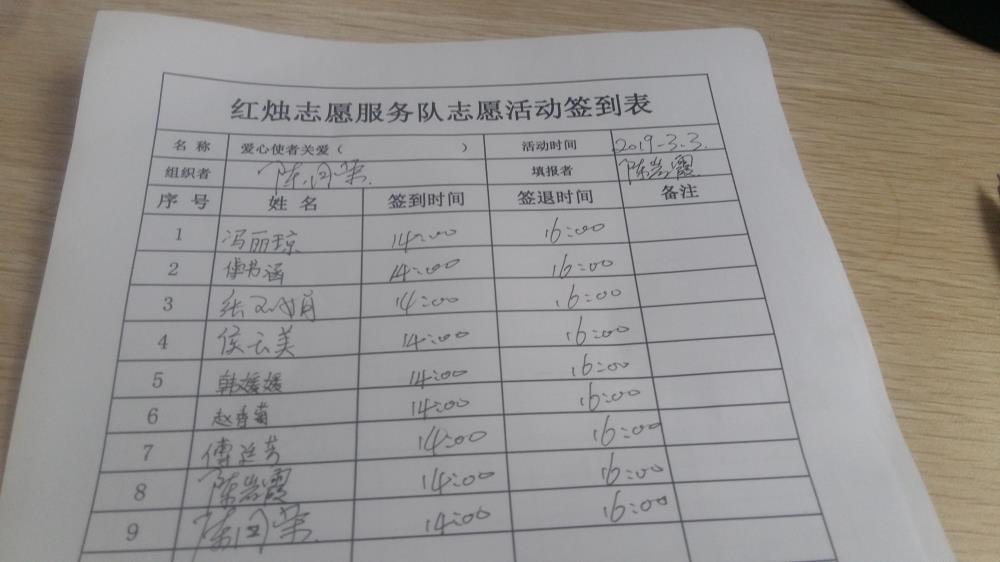 红烛志愿服务队志愿活动签到表
名称 爱心使者关爱( ) 活动时间 2019-3.3.
组织者 陈同荣 填报者 陈岩霞
序号 姓名 签到时间 签退时间 备注
1 冯丽琼 14:00 16:00
2 傅书涵 14:00 16:00
3 张 14:00 16:00
4 侯云美 14:00 16:00
5 韩媛媛 14:00 16:00
6 赵春菊 14:00 16:00
7 傅延芳 14:00 16:00
8 陈岩霞 14:00 16:00
9 陈同荣 14:00 16:00